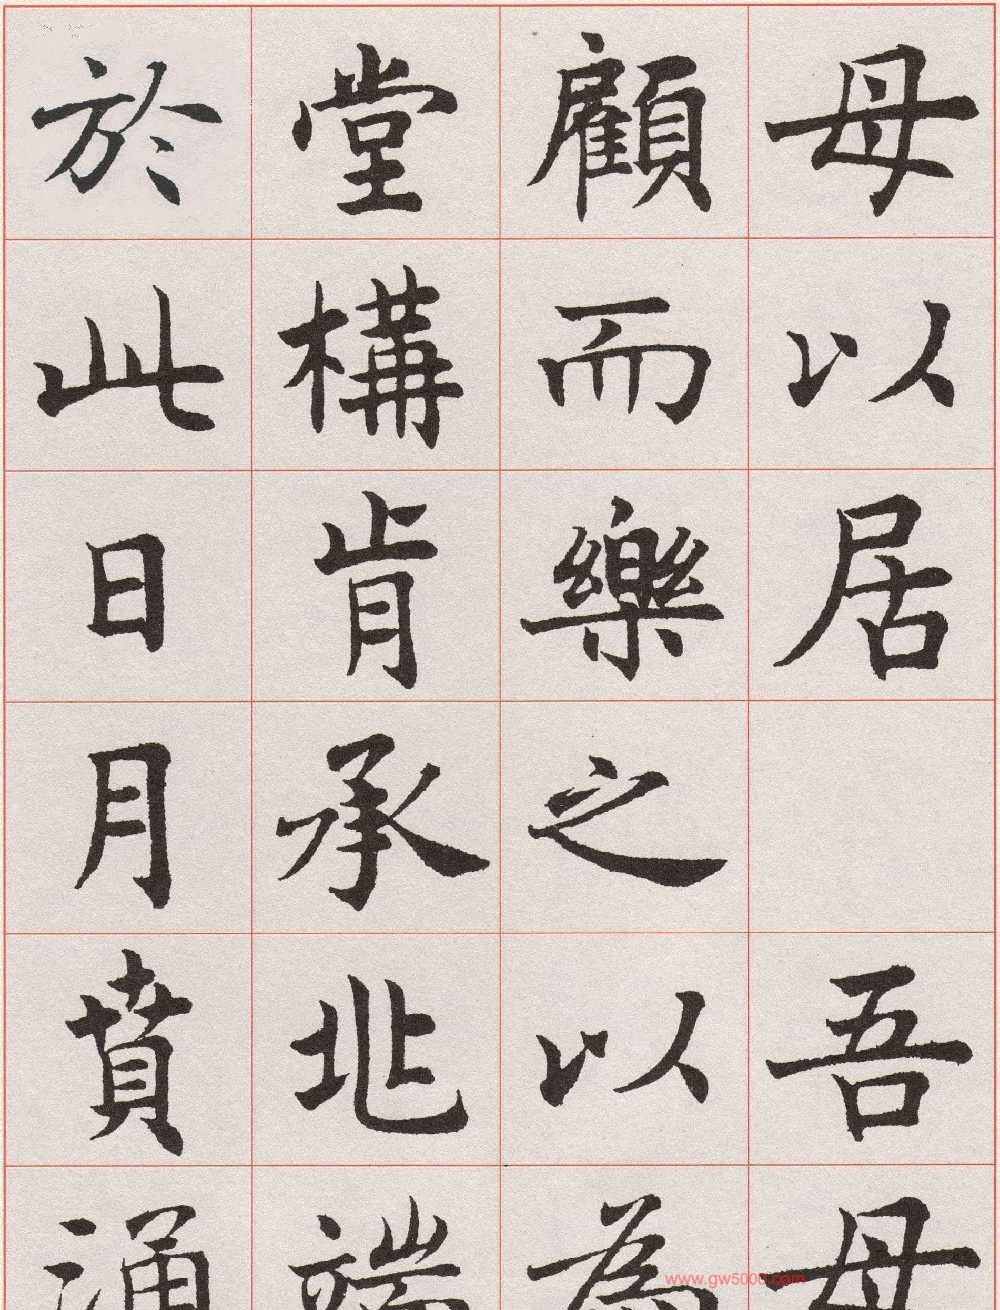 母以居吾母
顧而樂之以為
堂構肯承
於此日月
www.gw5000.com